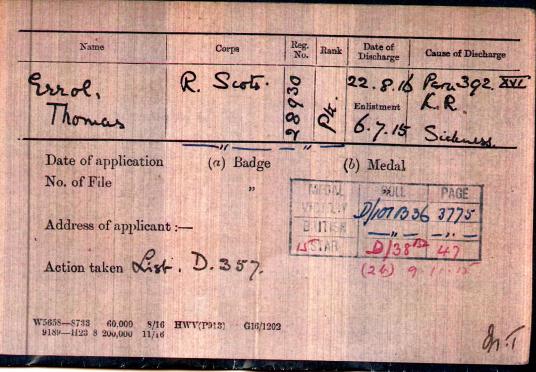 Name Corps Reg. No. Rank Date of Discharge Cause of Discharge
Errol, R. Scots. 28930 Pte. 22.8.16 Para 392 XVI
Thomas Enlistment K.R.
6.7.15 Sickness.
Date of application (a) Badge (b) Medal
No. of File "
MEDAL ROLL PAGE
VICTORY D/101 B36 3775
Address of applicant :—
BRITISH — „ — — „ —
15 STAR D/38 B2 47
Action taken List. D.357.
(2b) 9.11.15
W5658—S733 60,000 8/16 HWV(P913) G16/1202
9189—H23 8 200,000 11/16